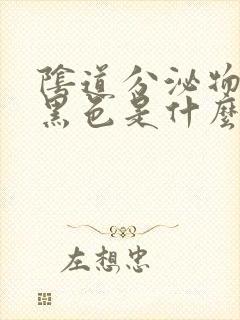 陰道分泌物
黑色是什麼
左想忠